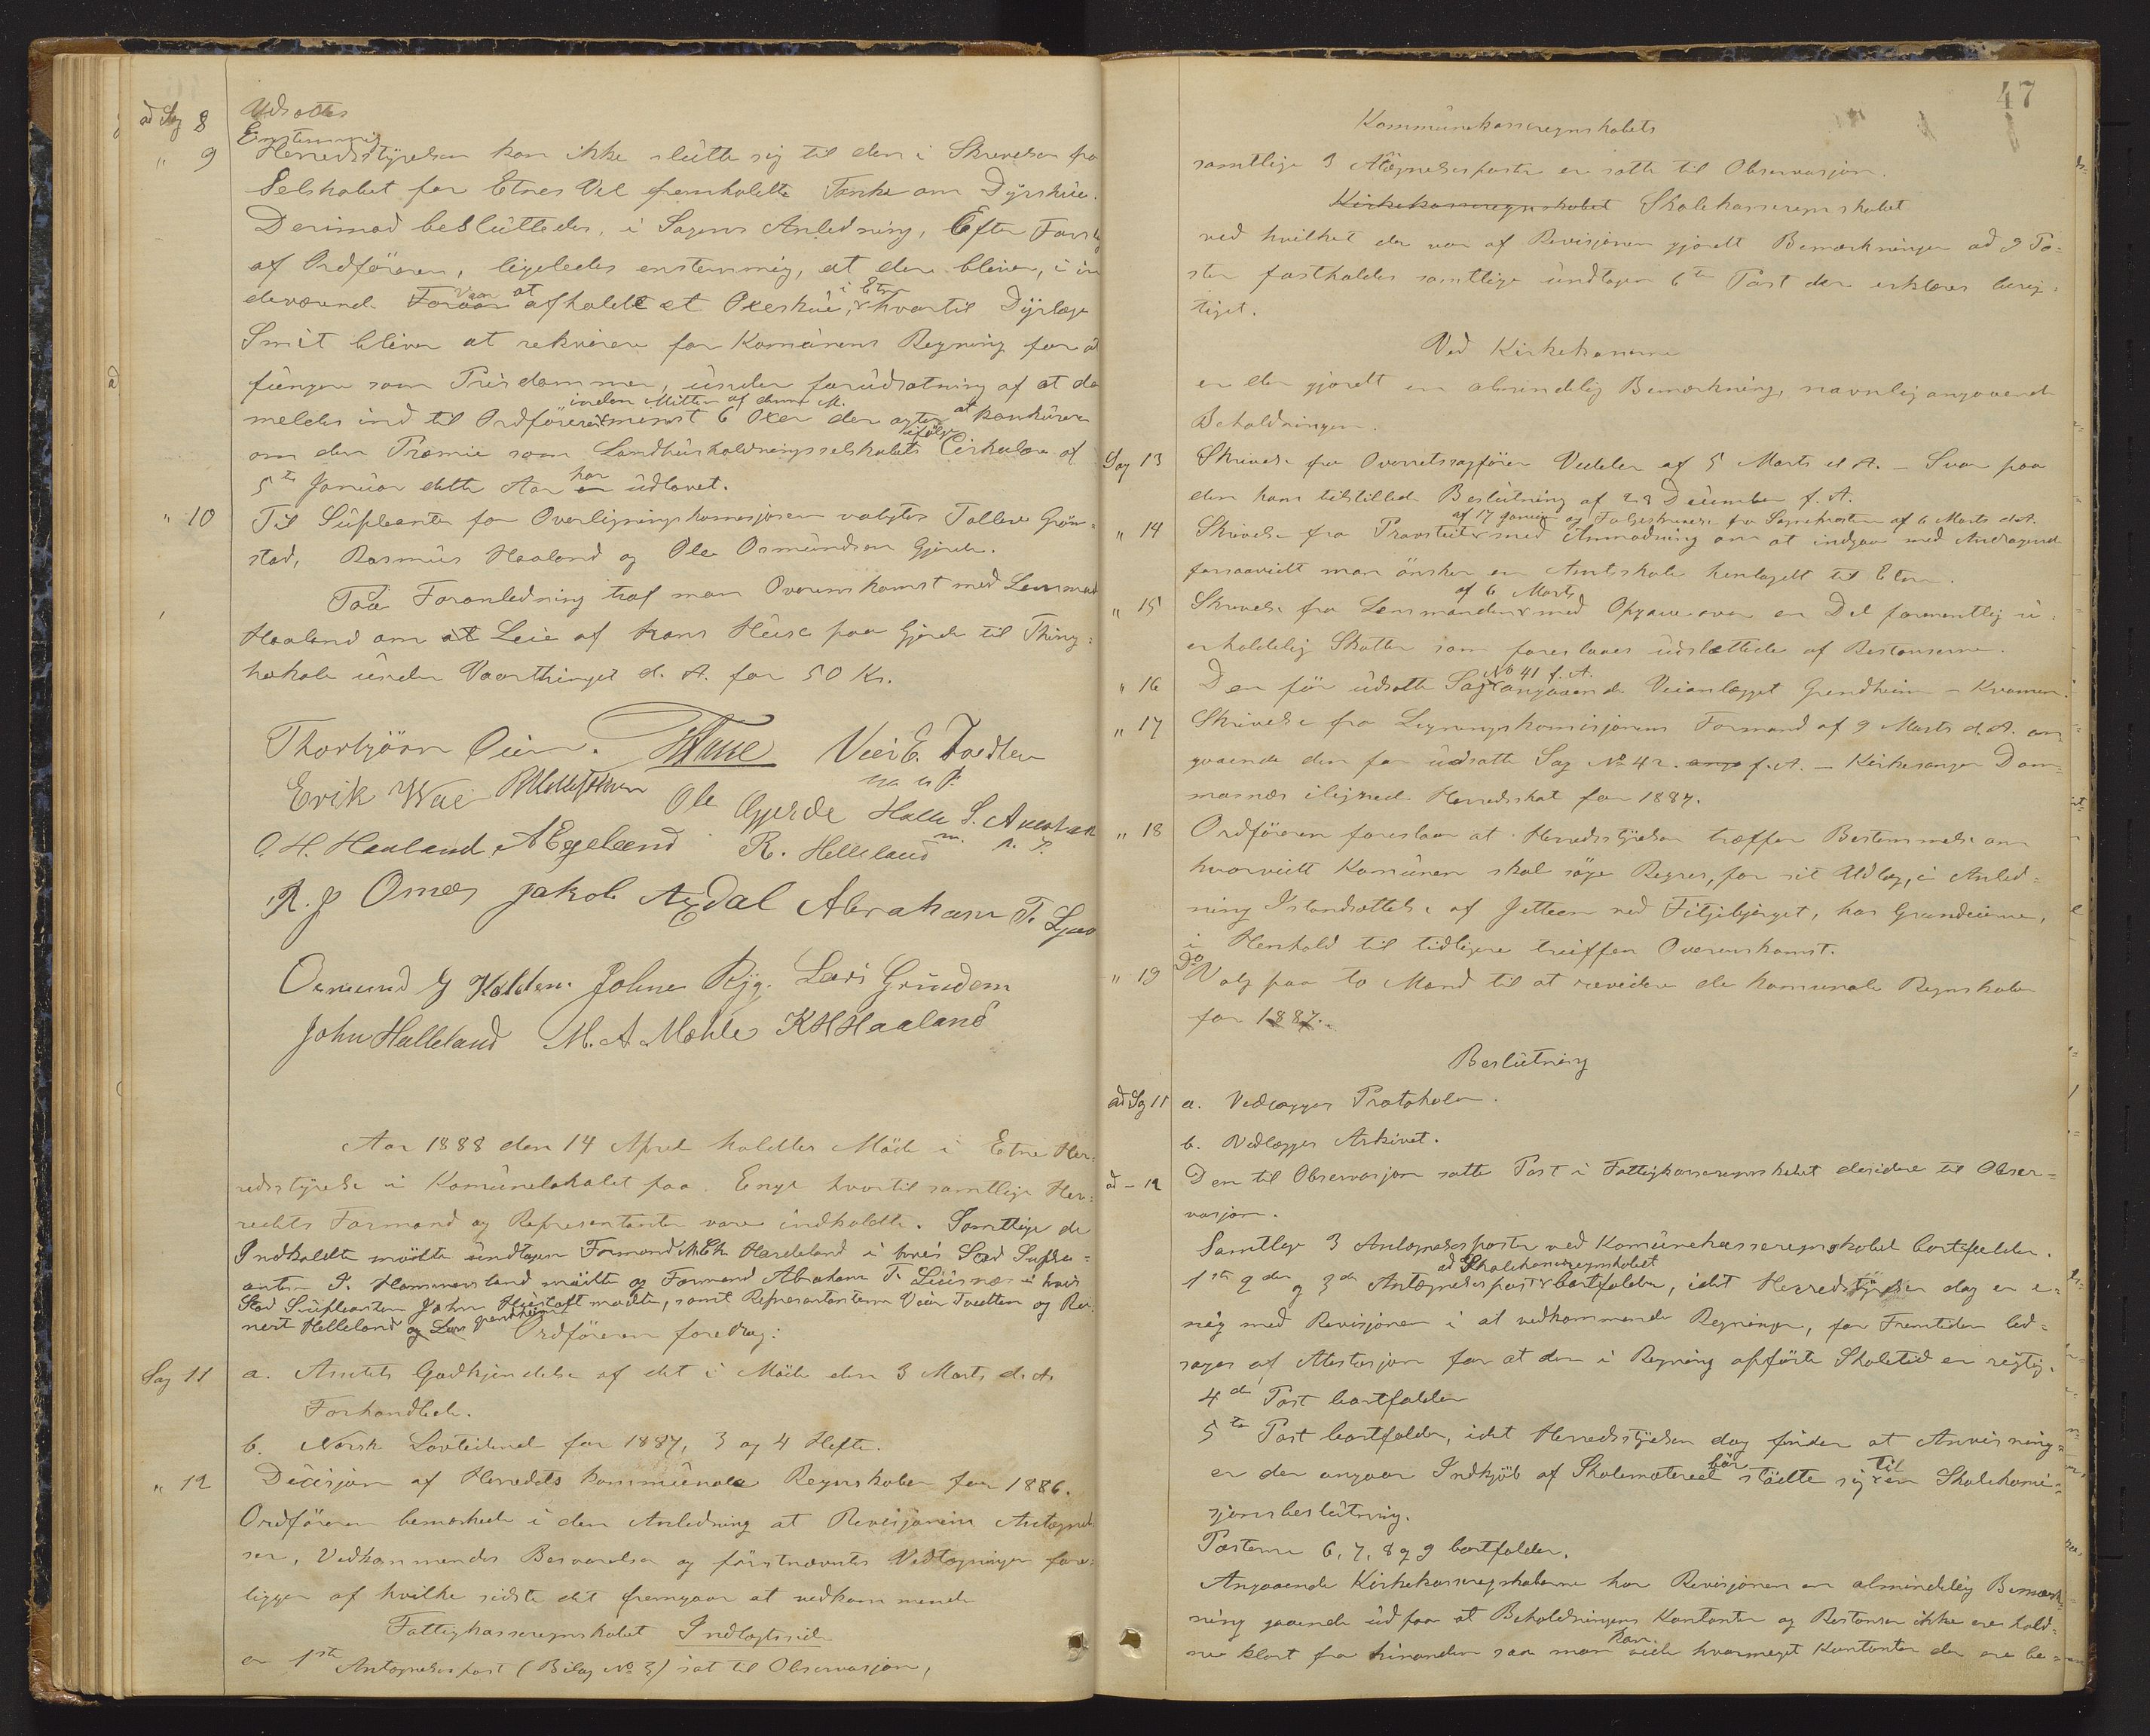 ad Sag 8 Udsattes
Enstemmig
" 9 Herredsstyrelsen kan ikke slutte sig til den i Skrivelsen fra
Selskabet for Etnes Vel fremholdte Tanke om Dyrskue.
Derimod besluttedes, i Sagens Anledning, Efter Forslag
af Ordføreren, ligeledes enstemmig, at der bliver, i in
deværende Vaar at afholdt et Oxeskue, i Etne hvortil Dyrlæge
Smit bliver at rekvirere for Komunens Regning for at
fungere som Prisdommer, under forudsætning af at der
inden Mitten af denne M.
meldes ind til Ordføreren minst 6 Oxer der agter at konkurere
om den Præmie som Landhusholdningsselskabets ifølge Cirkulære af
5te Januar dette Aar har udlovet.
" 10 Til Supleanter for Overligningskomisjonen valgtes Tollev Grøn-
stad, Rasmus Haaland og Ole Osmundsen Gjerde.
Paa Foranledning traf man Overenskomst med Lensmand
Haaland om Leie af hans Huse paa Gjerde til Thing-
lokale under Vaarthinget d. A. for 50 Kr.
Thorbjørn Øien.
Erik Wae Ole Gjerde Halle S.
m. p. P.
O. H. Haaland, A Egeland R. Helleland
R. J Omes Jakob Axdal Abraham T.
Osmund G Kalden. Johne Ryg. Lars Grindem
John Halleland M. A. Mæhle K H Haaland
Aar 1888 den 14 April holdtes Møde i Etne Her-
redsstyrelse i Komunelokalet paa Enge hvortil samtlige Her-
redets Formænd og Representanter vare indkaldte. Samtlige de
Indkaldte mødte undtagen Formand Hardeland i hvis Sted Suple-
anten P. Hammersland mødte og Formand Abraham T. i hvis
Sted Supleanten John mødte, samt Representanterne Veier Tvedten og Rei-
nert Helleland og Lars Grindheim Ordføreren foredrog:
Sag 11 a. Amtets Godkjendelse af det i Møde den 3 Marts d. A.
Forhandlede.
b. Norsk Lovtidende for 1887, 3 og 4 Hefte.
" 12 Decisjon af Herredets kommunale Regnskaber for 1886.
Ordføreren bemærkede i den Anledning at Revisjonens Antegnel
ser, Vedkommendes Besvarelser og førstnævntes Vedtegninger fore-
ligger af hvilke sidste det fremgaar at vedkommende
Fattigkasseregnskabet Indtægtsside
er 1ste Antegnelsespost (Bilag No 3) sat til Observasjon,
47
Kommunekasseregnskabets
samtlige 3 Antegnelsesposter er satte til Observasjon.
Kirkekasseregnskabet Skolekasseregnskabet
ved hvilket der var af Revisjonen gjordt Bemærkninger ad 9 Po-
ster fastholdes samtlige undtagen 6te Post der erklæres berig-
tiget.
Ved Kirkekasserne
er der gjordt en almindelig Bemærkning, navnlig angaaende
Beholdningen.
Sag 13 Skrivelse fra Overretssagfører Vedeler af 5 Marts d. A. - Svar paa
den ham tilstillede Beslutning af 28 December f. A.
af 17 Januar og Følgeskrivelse fra Sogneprosten af 6 Marts d. A.
" 14 Skrivelse fra Provstiet med Anmodning om at indgaa med Andragende
forsaavidt man ønsker en Amtskole henlagdt til Etne.
af 6 Marts
" 15 Skrivelse fra Lensmanden med Opgave over en Del formentlig u-
erholdelig Skatter som foreslaaes udslettede af Restanserne.
No 41 f. A.
" 16 Den før udsatte Sag angaaende Veianlægget Grendheim - Kvamen.
" 17 Skrivelse fra Ligningskomisjonens Formand af 9 Marts d. A. an-
gaaende den før udsatte Sag No 42. f. A. - Kirkesanger Dom-
masnes ilignede Herredsskat for 1887.
" 18 Ordføreren foreslaar at Herredsstyrelsen træffer Bestemmelse om
hvorvidt Komunen skal søge Regres, for sit Udlæg, i Anled-
ning Istandsættelse af ved Fitjebjerget, hos Grundeierne,
i Henhold til tidligere truffen Overenskomst.
" 19 Valg paa to Mænd til at revidere de komunale Regnskaber
for 1887.
Beslutning
ad Sag 11 a. Vedlægges Protokolen.
b. Vedlægges Arkivet.
ad - 12 Den til Observasjon satte Post i Fattigkasseregnskabet desidere til Obser-
vasjon.
Samtlige 3 Antegnelsesposter ved Komunekasseregnskabet bortfalder.
ad Skolekasseregnskabet
1ste 2den og 3de Antegnelsespost bortfalder, idet Herredsstyrelsen dog er e-
nig med Revisjonen i at vedkommende Regninger, for Fremtiden led-
sages af Atestasjon for at den i Regning opførte Skoletid er rigtig.
4de Post bortfalder
5te Post bortfalder, idet Herredsstyrelsen dog finder at Anvisning-
er der angaar Indkjøb af Skolemateriel bør støtte sig til en Skolekomi-
sjonsbeslutning.
Posterne 6, 7, 8 og 9 bortfalder.
Angaaende Kirkekasseregnskaberne har Revisjonen en almindelig Bemærk-
ning gaaende ud paa at Beholdningens Kontanter og Restanser ikke ere hold-
ne klart fra hinanden saa man kan vide hvormeget Kontanter der ere be-